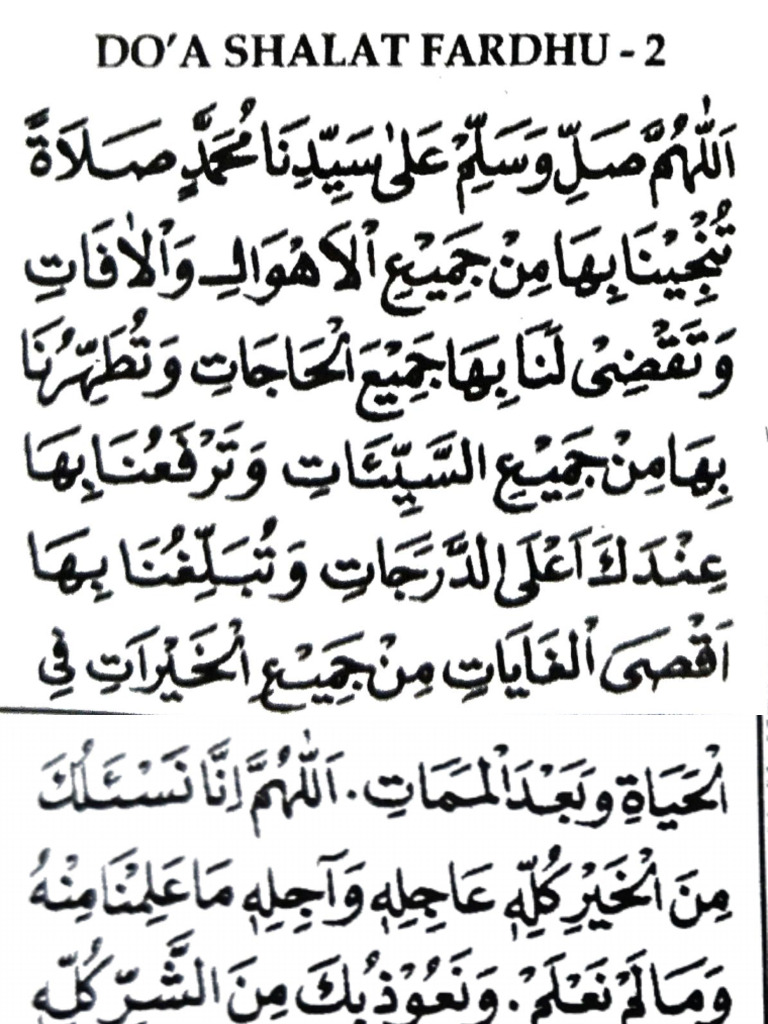 DO'A SHALAT FARDHU - 2
اَللّٰهُمَّ صَلِّ وَسَلِّمْ عَلٰى سَيِّدِنَا مُحَمَّدٍ صَلَاةً
تُنْجِيْنَا بِهَا مِنْ جَمِيْعِ الْاَهْوَالِ وَالْاٰفَاتِ
وَتَقْضِىْ لَنَا بِهَا جَمِيْعَ الْحَاجَاتِ وَتُطَهِّرُنَا
بِهَا مِنْ جَمِيْعِ السَّيِّئَاتِ وَتَرْفَعُنَا بِهَا
عِنْدَكَ اَعْلَى الدَّرَجَاتِ وَتُبَلِّغُنَا بِهَا
اَقْصَى الْغَايَاتِ مِنْ جَمِيْعِ الْخَيْرَاتِ فِي
الْحَيَاةِ وَبَعْدَ الْمَمَاتِ. اَللّٰهُمَّ اِنَّا نَسْئَلُكَ
مِنَ الْخَيْرِ كُلِّهِ عَاجِلِهِ وَآجِلِهِ مَا عَلِمْنَا مِنْهُ
وَمَا لَمْ نَعْلَمْ. وَنَعُوْذُ بِكَ مِنَ الشَّرِّ كُلِّهِ